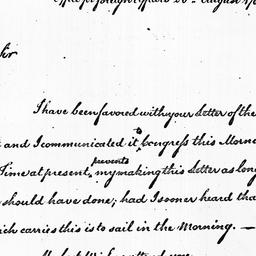 Office of foreign Affairs 20th August 17
Sir
I have been favored with your Letter of the
and I communicated it to Congress this Morn
Time at present prevents my making this Letter as long
should have done; had I sooner heard tha
ich carries this is to sail in the Morning. —